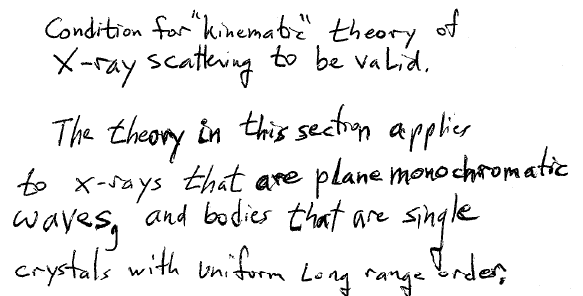 Condition for "kinematic" theory of
X-ray scattering to be valid.
The theory in this section applies
to x-rays that are plane monochromatic
waves, and bodies that are single
crystals with uniform long range order.